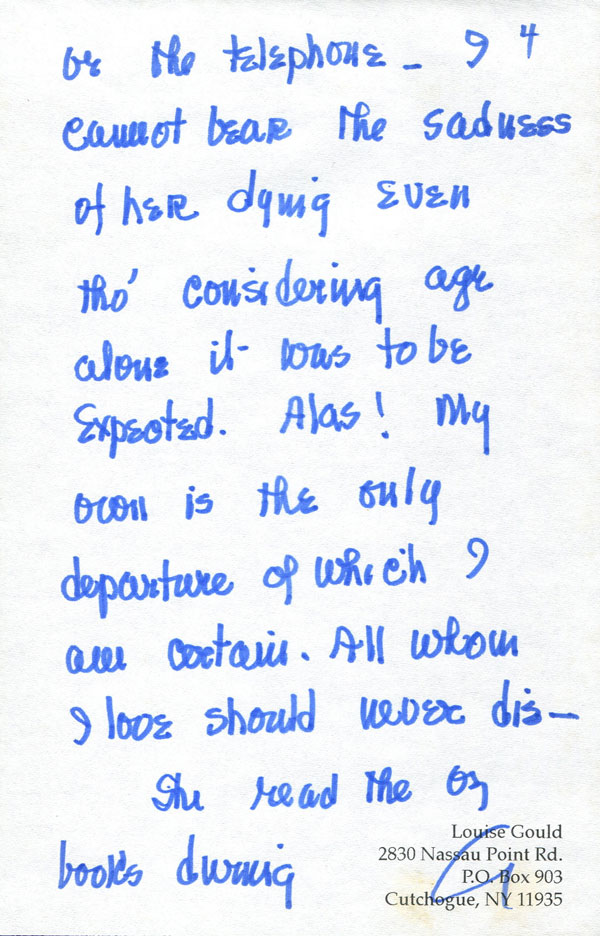 or the telephone – I 4
cannot bear the sadness
of her dying even
tho' considering age
alone it was to be
Expected. Alas! My
own is the only
departure of which I
am certain. All whom
I love should never die –
She read the Oz
books during
Louise Gould
2830 Nassau Point Rd.
P.O. Box 903
Cutchogue, NY 11935